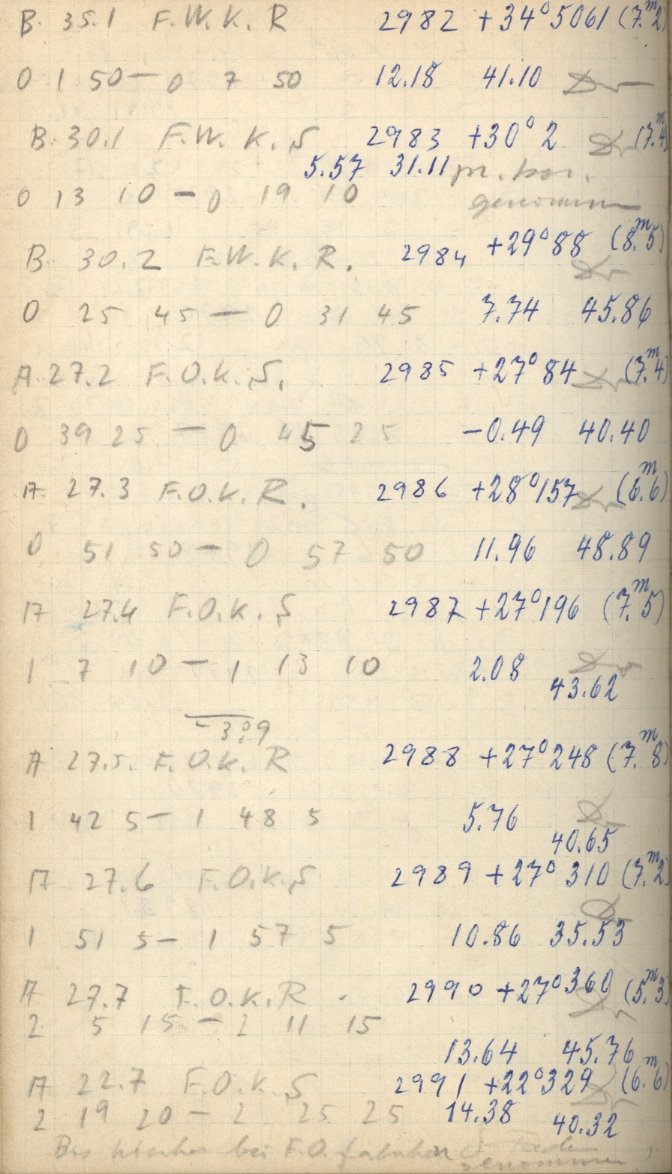 B. 35.1 F.W.K.R 2982 +34°5061 (7.ᵐ2)
0 1 50 — 0 7 50 12.18 41.10
B. 30.1 F.W.K.S 2983 +30°2 (7.ᵐ4)
5.57 31.11
0 13 10 — 0 19 10 genommen
B. 30.2 F.W.K.R. 2984 +29°88 (8.ᵐ5)
0 25 45 — 0 31 45 7.74 45.86
A. 27.2 F.O.K.S. 2985 +27°84 (7.ᵐ4)
0 39 25 — 0 45 25 -0.49 40.40
A. 27.3 F.O.K.R. 2986 +28°157 (6.ᵐ6)
0 51 50 — 0 57 50 11.96 48.89
A 27.4 F.O.K.S 2987 +27°196 (7.ᵐ5)
1 7 10 — 1 13 10 2.08 43.62
-3°.9
A 27.5. F.O.K.R 2988 +27°248 (7.ᵐ8)
1 42 5 — 1 48 5 5.76 40.65
A 27.6 F.O.K.S 2989 +27°310 (7.ᵐ2)
1 51 5 — 1 57 5 10.86 35.53
A 27.7 F.O.K.R. 2990 +27°360 (5.ᵐ3)
2 5 15 — 2 11 15 13.64 45.76
A 22.7 F.O.K.S 2991 +22°329 (6.ᵐ6)
2 19 20 — 2 25 25 14.38 40.32
Bis hierher bei F.O. genommen